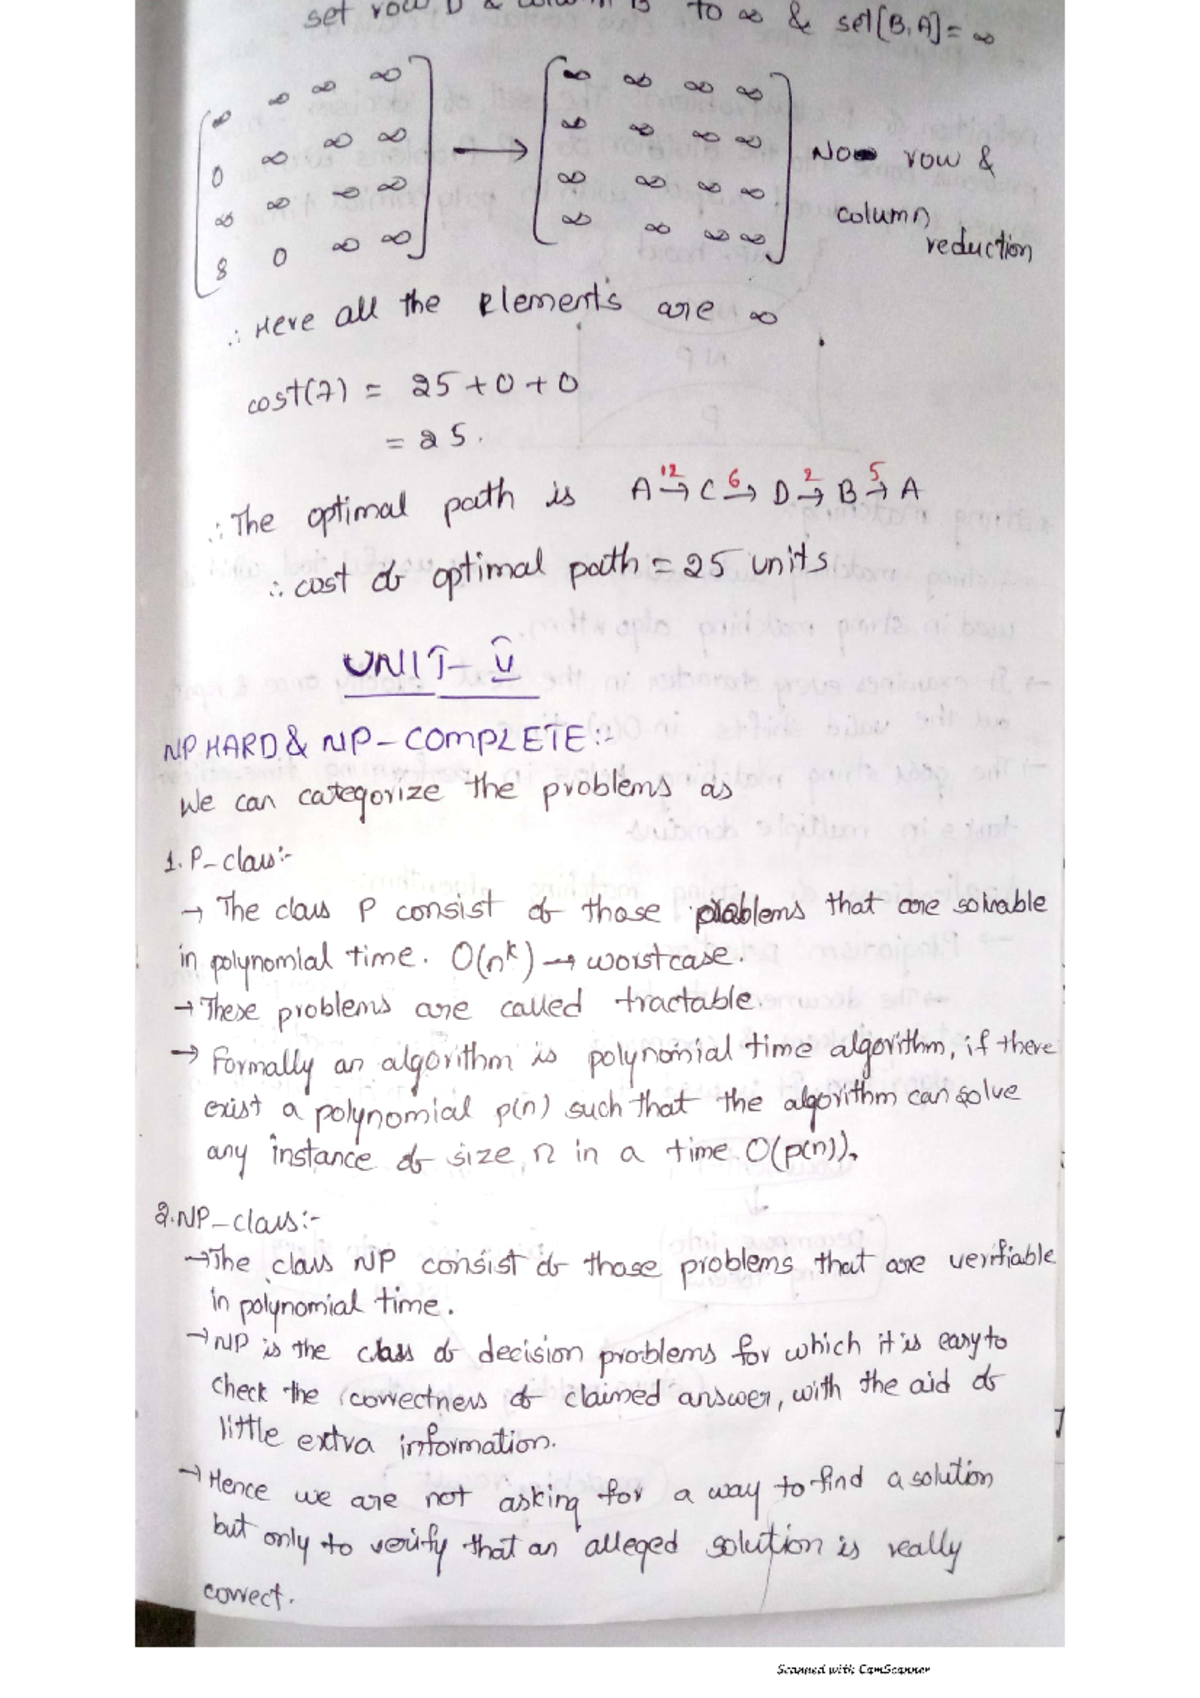 set row D & column B to ∞ & set[B,A]=∞
∞ ∞ ∞ ∞ → ∞ ∞ ∞ ∞
0 ∞ ∞ ∞ ∞ ∞ ∞ ∞ No row &
∞ ∞ ∞ ∞ ∞ ∞ ∞ ∞ column
8 0 ∞ ∞ ∞ ∞ ∞ ∞ reduction
∴ Here all the Elements are ∞
cost(7) = 25+0+0
= 25.
∴ The optimal path is A 12→ C 6→ D 2→ B 5→ A
∴ cost of optimal path = 25 units
UNIT-V
NP HARD & NP-COMPLETE:-
We can categorize the problems as
1. P-class:-
→ The class P consist of those problems that are solvable
in polynomial time. O(n^k) → worstcase.
→ These problems are called tractable.
→ Formally an algorithm is polynomial time algorithm, if there
exist a polynomial p(n) such that the algorithm can solve
any instance of size n in a time O(p(n)).
2. NP-class:-
→ The class NP consist of those problems that are verifiable
in polynomial time.
→ NP is the class of decision problems for which it is easy to
check the correctness of claimed answer, with the aid of
little extra information.
→ Hence we are not asking for a way to find a solution
but only to verify that an alleged solution is really
correct.
Scanned with CamScanner